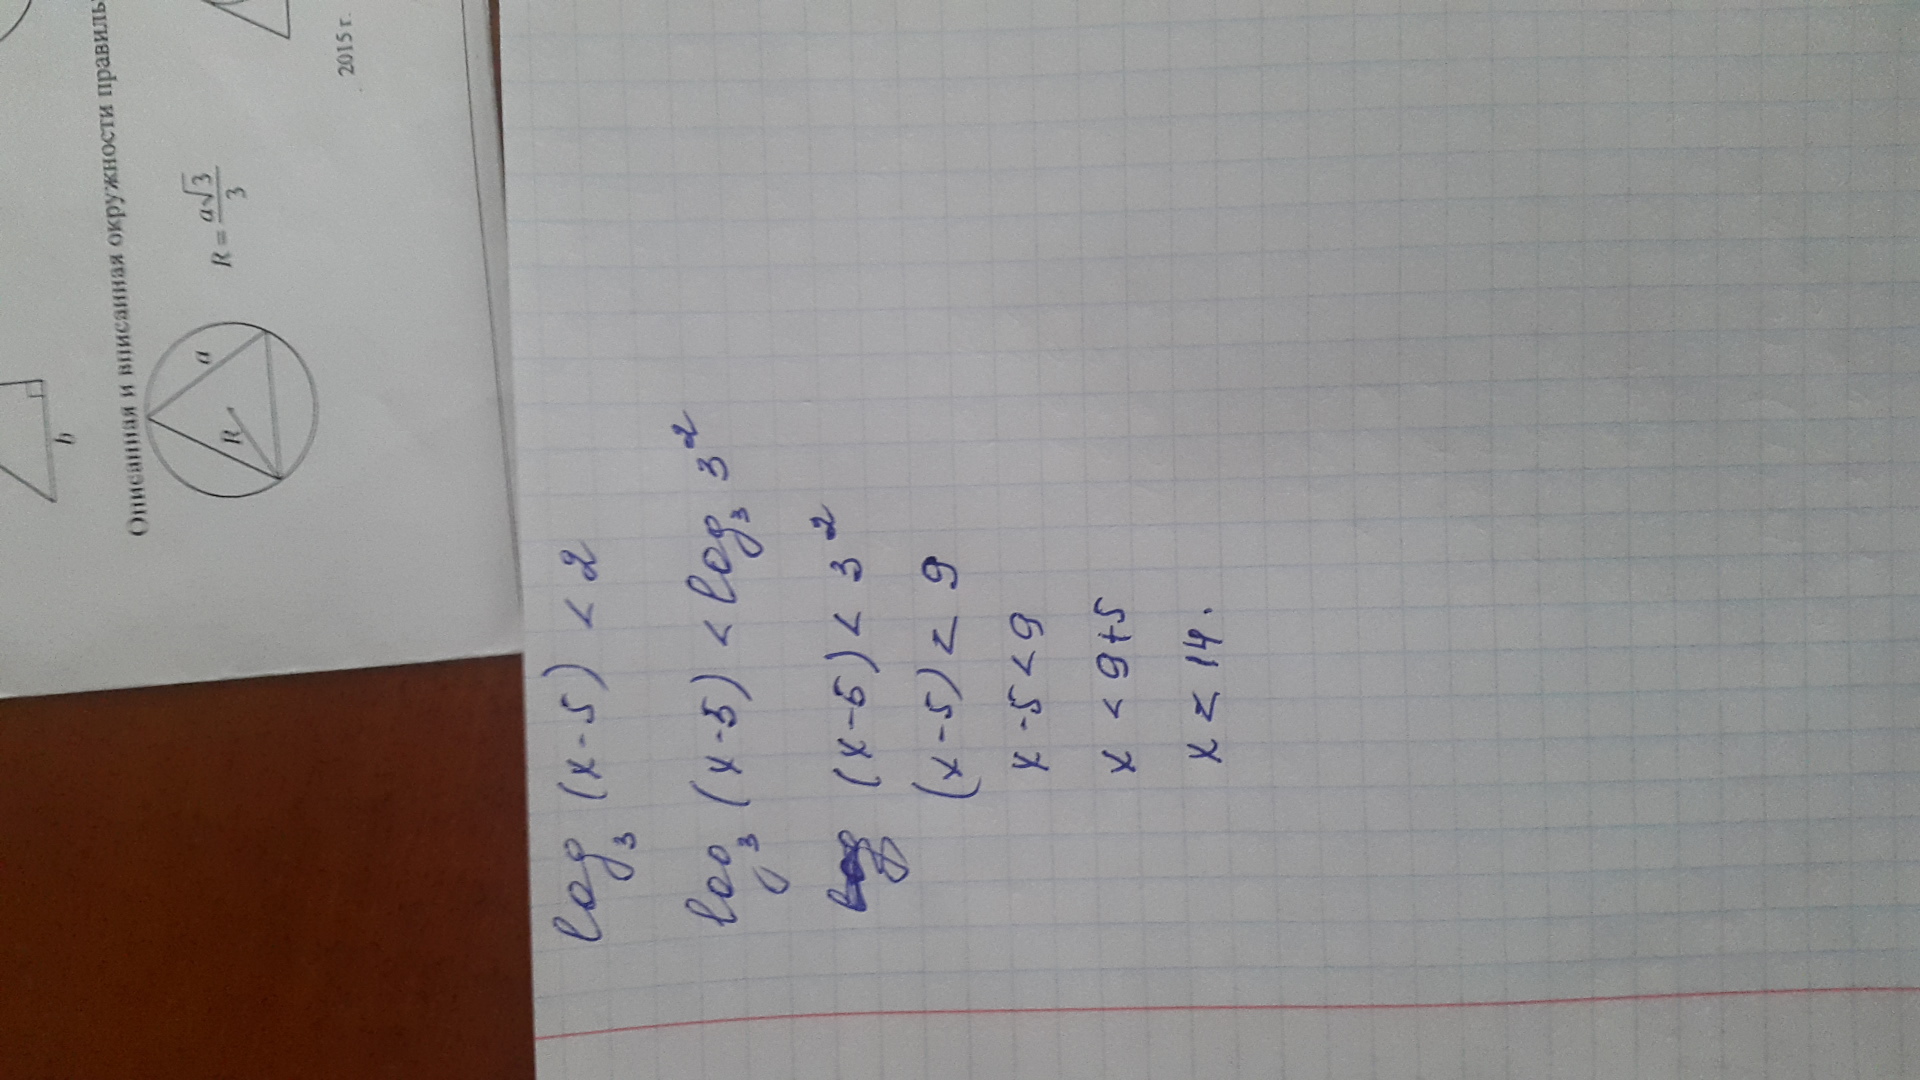 b
Описанная и вписанная окружности правиль
a
R
R = a√3/3
2015 г.
log₃ (x-5) < 2
log₃ (x-5) < log₃ 3²
(x-5) < 3²
(x-5) < 9
x-5 < 9
x < 9+5
x < 14.